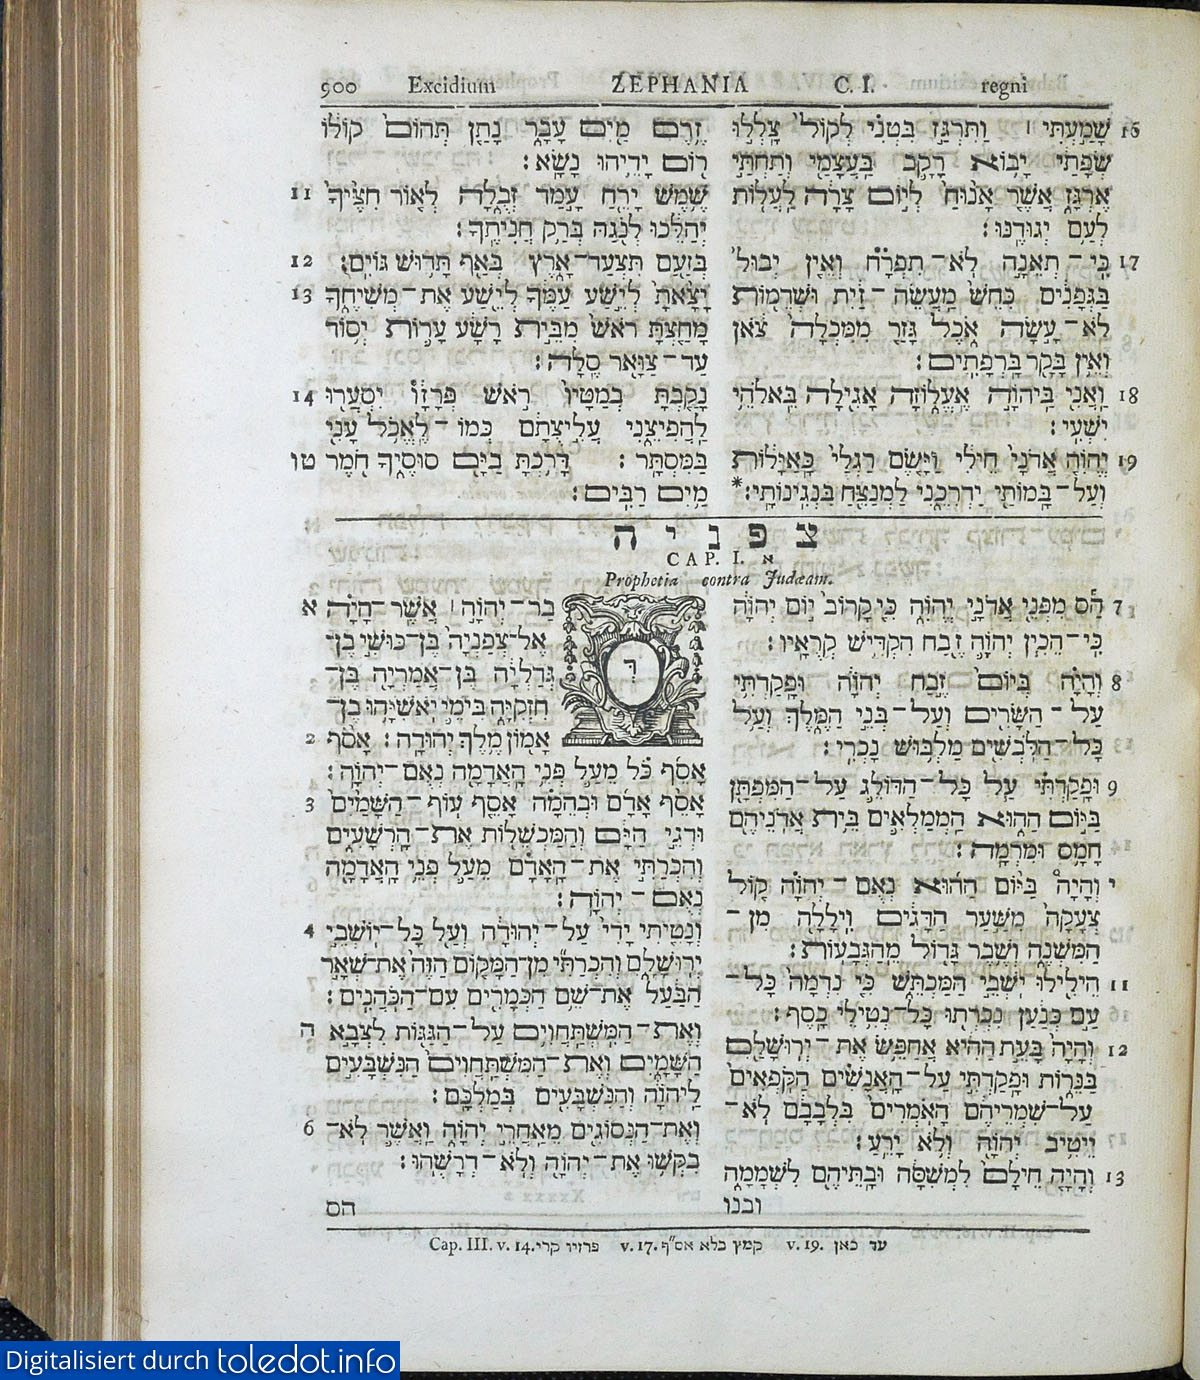 900 Excidium ZEPHANIA C. I. regni
זֶרֶם מַיִם עָבָר נָתַן תְּהוֹם קוֹלוֹ
רוֹם יָדֵיהוּ נָשָׂא׃
11 שֶׁמֶשׁ יָרֵחַ עָמַד זְבֻלָה לְאוֹר חִצֶּיךָ
יְהַלֵּכוּ לְנֹגַהּ בְּרַק חֲנִיתֶךָ׃
12 בְּזַעַם תִּצְעַד־אָרֶץ בְּאַף תָּדוּשׁ גּוֹיִם׃
13 יָצָאתָ לְיֵשַׁע עַמֶּךָ לְיֵשַׁע אֶת־מְשִׁיחֶךָ
מָחַצְתָּ רֹאשׁ מִבֵּית רָשָׁע עָרוֹת יְסוֹד
עַד־צַוָּאר סֶלָה׃
14 נָקַבְתָּ בְמַטָּיו רֹאשׁ פְּרָזָו יִסְעֲרוּ
לַהֲפִיצֵנִי עֲלִיצֻתָם כְּמוֹ־לֶאֱכֹל עָנִי
טו בַּמִּסְתָּר׃ דָּרַכְתָּ בַיָּם סוּסֶיךָ חֹמֶר
מַיִם רַבִּים׃
16 שָׁמַעְתִּי ׀ וַתִּרְגַּז בִּטְנִי לְקוֹל צָלְלוּ
שְׂפָתַי יָבוֹא רָקָב בַּעֲצָמַי וְתַחְתַּי
אֶרְגָּז אֲשֶׁר אָנוּחַ לְיוֹם צָרָה לַעֲלוֹת
לְעַם יְגוּדֶנּוּ׃
17 כִּי־תְאֵנָה לֹא־תִפְרָח וְאֵין יְבוּל
בַּגְּפָנִים כִּחֵשׁ מַעֲשֵׂה־זַיִת וּשְׁדֵמוֹת
לֹא־עָשָׂה אֹכֶל גָּזַר מִמִּכְלָה צֹאן
וְאֵין בָּקָר בָּרְפָתִים׃
18 וַאֲנִי בַּיהוָֹה אֶעֱלוֹזָה אָגִילָה בֵּאלֹהֵי
יִשְׁעִי׃
19 יֱהוִֹה אֲדֹנָי חֵילִי וַיָּשֶׂם רַגְלַי כָּאַיָּלוֹת
וְעַל־בָּמוֹתַי יַדְרִכֵנִי לַמְנַצֵּחַ בִּנְגִינוֹתָי׃*
צפניה
CAP. I. א
Prophetia contra Judæam.
א דְּבַר־יְהוָֹה ׀ אֲשֶׁר־הָיָה
אֶל־צְפַנְיָה בֶּן־כּוּשִׁי בֶן־
גְּדַלְיָה בֶּן־אֲמַרְיָה בֶּן־
חִזְקִיָּה בִּימֵי יֹאשִׁיָּהוּ בֶן־
2 אָמוֹן מֶלֶךְ יְהוּדָה׃ אָסֹף
אָסֵף כֹּל מֵעַל פְּנֵי הָאֲדָמָה נְאֻם־יְהוָֹה׃
3 אָסֵף אָדָם וּבְהֵמָה אָסֵף עוֹף־הַשָּׁמַיִם
וּדְגֵי הַיָּם וְהַמַּכְשֵׁלוֹת אֶת־הָרְשָׁעִים
וְהִכְרַתִּי אֶת־הָאָדָם מֵעַל פְּנֵי הָאֲדָמָה
נְאֻם־יְהוָֹה׃
4 וְנָטִיתִי יָדִי עַל־יְהוּדָה וְעַל כָּל־יוֹשְׁבֵי
יְרוּשָׁלָ͏ִם וְהִכְרַתִּי מִן־הַמָּקוֹם הַזֶּה אֶת־שְׁאָר
הַבַּעַל אֶת־שֵׁם הַכְּמָרִים עִם־הַכֹּהֲנִים׃
ה וְאֶת־הַמִּשְׁתַּחֲוִים עַל־הַגַּגּוֹת לִצְבָא
הַשָּׁמָיִם וְאֶת־הַמִּשְׁתַּחֲוִים הַנִּשְׁבָּעִים
לַיהוָֹה וְהַנִּשְׁבָּעִים בְּמַלְכָּם׃
6 וְאֶת־הַנְּסוֹגִים מֵאַחֲרֵי יְהוָֹה וַאֲשֶׁר לֹא־
בִקְשׁוּ אֶת־יְהוָֹה וְלֹא־דְרָשֻׁהוּ׃
הס
7 הַס מִפְּנֵי אֲדֹנָי יֱהוִֹה כִּי קָרוֹב יוֹם יְהוָֹה
כִּי־הֵכִין יְהוָֹה זֶבַח הִקְדִּישׁ קְרֻאָיו׃
8 וְהָיָה בְּיוֹם זֶבַח יְהוָֹה וּפָקַדְתִּי
עַל־הַשָּׂרִים וְעַל־בְּנֵי הַמֶּלֶךְ וְעַל
כָּל־הַלֹּבְשִׁים מַלְבּוּשׁ נָכְרִי׃
9 וּפָקַדְתִּי עַל כָּל־הַדּוֹלֵג עַל־הַמִּפְתָּן
בַּיּוֹם הַהוּא הַמְמַלְאִים בֵּית אֲדֹנֵיהֶם
חָמָס וּמִרְמָה׃
י וְהָיָה בַיּוֹם הַהוּא נְאֻם־יְהוָֹה קוֹל
צְעָקָה מִשַּׁעַר הַדָּגִים וִילָלָה מִן־
הַמִּשְׁנֶה וְשֶׁבֶר גָּדוֹל מֵהַגְּבָעוֹת׃
11 הֵילִילוּ יֹשְׁבֵי הַמַּכְתֵּשׁ כִּי נִדְמָה כָּל־
עַם כְּנַעַן נִכְרְתוּ כָּל־נְטִילֵי כָסֶף׃
12 וְהָיָה בָּעֵת הַהִיא אֲחַפֵּשׂ אֶת־יְרוּשָׁלַ͏ִם
בַּנֵּרוֹת וּפָקַדְתִּי עַל־הָאֲנָשִׁים הַקֹּפְאִים
עַל־שִׁמְרֵיהֶם הָאֹמְרִים בִּלְבָבָם לֹא־
יֵיטִיב יְהוָֹה וְלֹא יָרֵעַ׃
13 וְהָיָה חֵילָם לִמְשִׁסָּה וּבָתֵּיהֶם לִשְׁמָמָה
ובנו
Cap. III. v. 14. פרזיו קרי v. 17. קמץ בלא אס״ף v. 19. עד כאן
Digitalisiert durch toledot.info